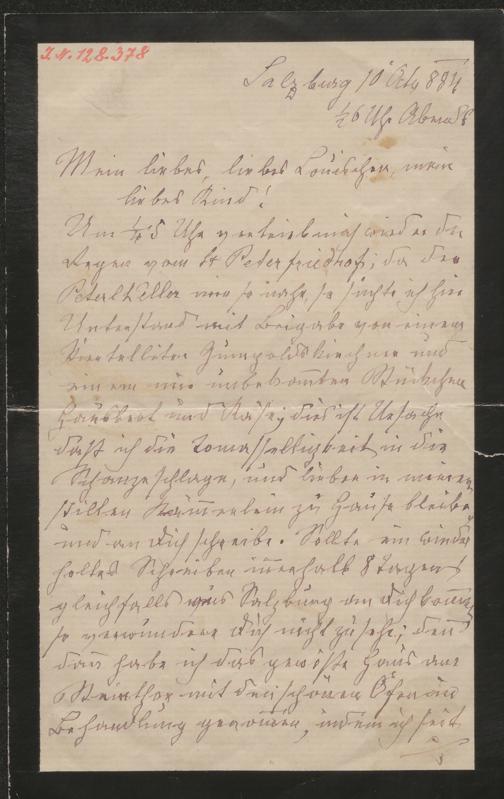 I. N. 128.378
Salzburg 10 Oct. 884
½6 Uhr Abends
Mein liebes, liebes Louischen, mein
liebes Kind!
Um ¼5 Uhr vertrieb mich wieder der
Regen vom St Peterfriedhofe; da der
Peterskeller mir so nahe, so suchte ich hier
Unterstand mit Beigabe von einem
Viertelliter Gumpoldskirchner und
einem mir unbekannten Stückchen
Hausbrot und Käse; dies ist Ursache
daß ich die in die
Schanze schlage, und lieber in meinem
stillen Kämmerlein zu Hause bleibe
und an Dich schreibe. Sollte ein wieder
holtes Schreiben innerhalb 8 Tagen
gleichfalls aus Salzburg an Dich kommen
so verwundere Dich nicht zu sehr; denn
dann habe ich das gewisse Haus am
Steinthor mit den schönen Öfen in
Behandlung genommen, indem ich seit